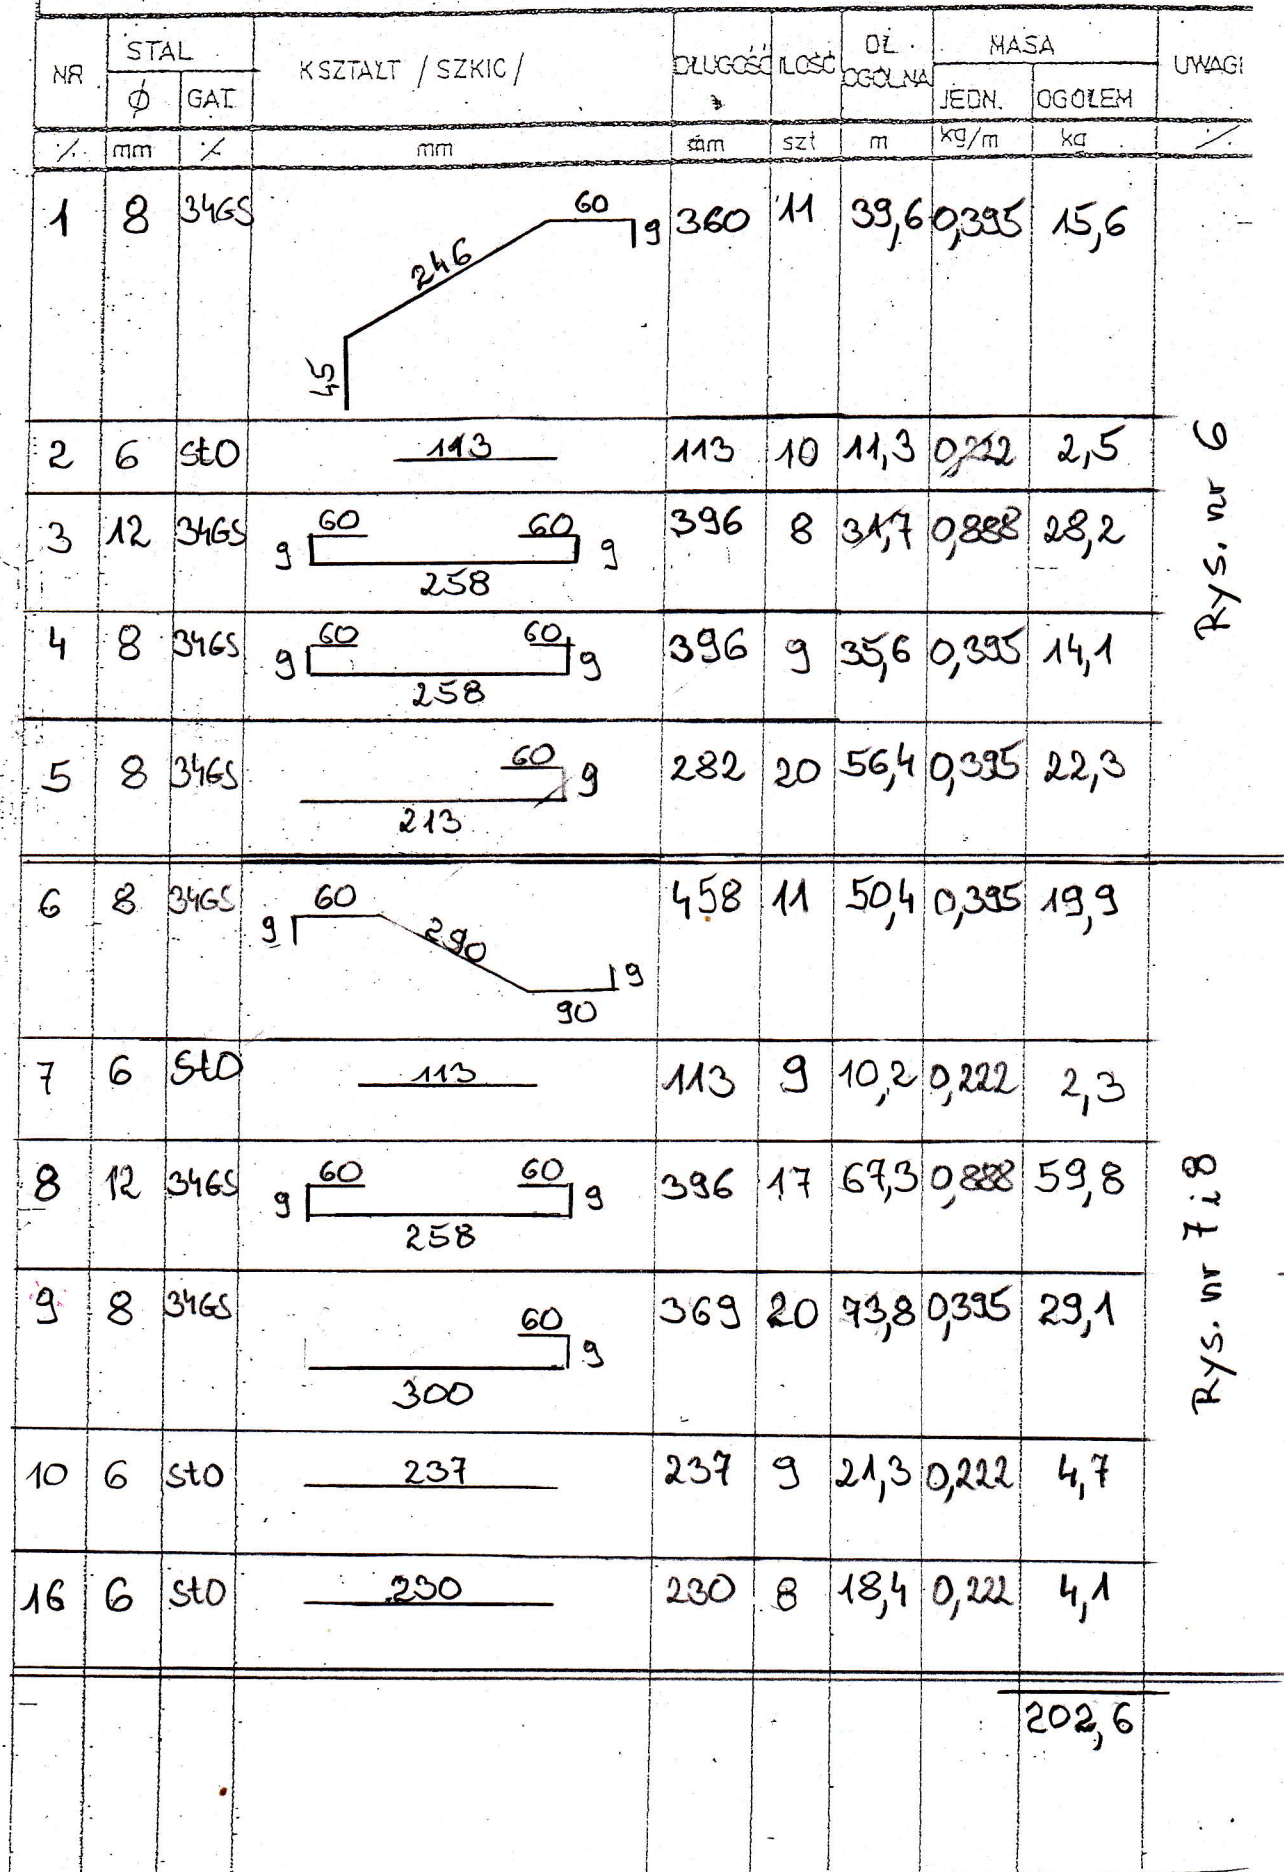 NR STAL KSZTAŁT / SZKIC / DŁUGOŚĆ ILOŚĆ DŁ. OGÓLNA MASA UWAGI
ϕ GAT. JEDN. OGÓŁEM
·/. mm ·/. mm szt m kg/m kg ·/.
1 8 34GS 45 246 60 9 360 11 39,6 0,395 15,6
2 6 StO 113 113 10 11,3 0,222 2,5
3 12 34GS 9 60 258 60 9 396 8 31,7 0,888 28,2
4 8 34GS 9 60 258 60 9 396 9 35,6 0,395 14,1
5 8 34GS 213 60 9 282 20 56,4 0,395 22,3
Rys. nr 6
6 8 34GS 9 60 290 90 9 458 11 50,4 0,395 19,9
7 6 StO 113 113 9 10,2 0,222 2,3
8 12 34GS 9 60 258 60 9 396 17 67,3 0,888 59,8
9 8 34GS 300 60 9 369 20 73,8 0,395 29,1
10 6 StO 237 237 9 21,3 0,222 4,7
16 6 StO 230 230 8 18,4 0,222 4,1
Rys. nr 7 i 8
202,6